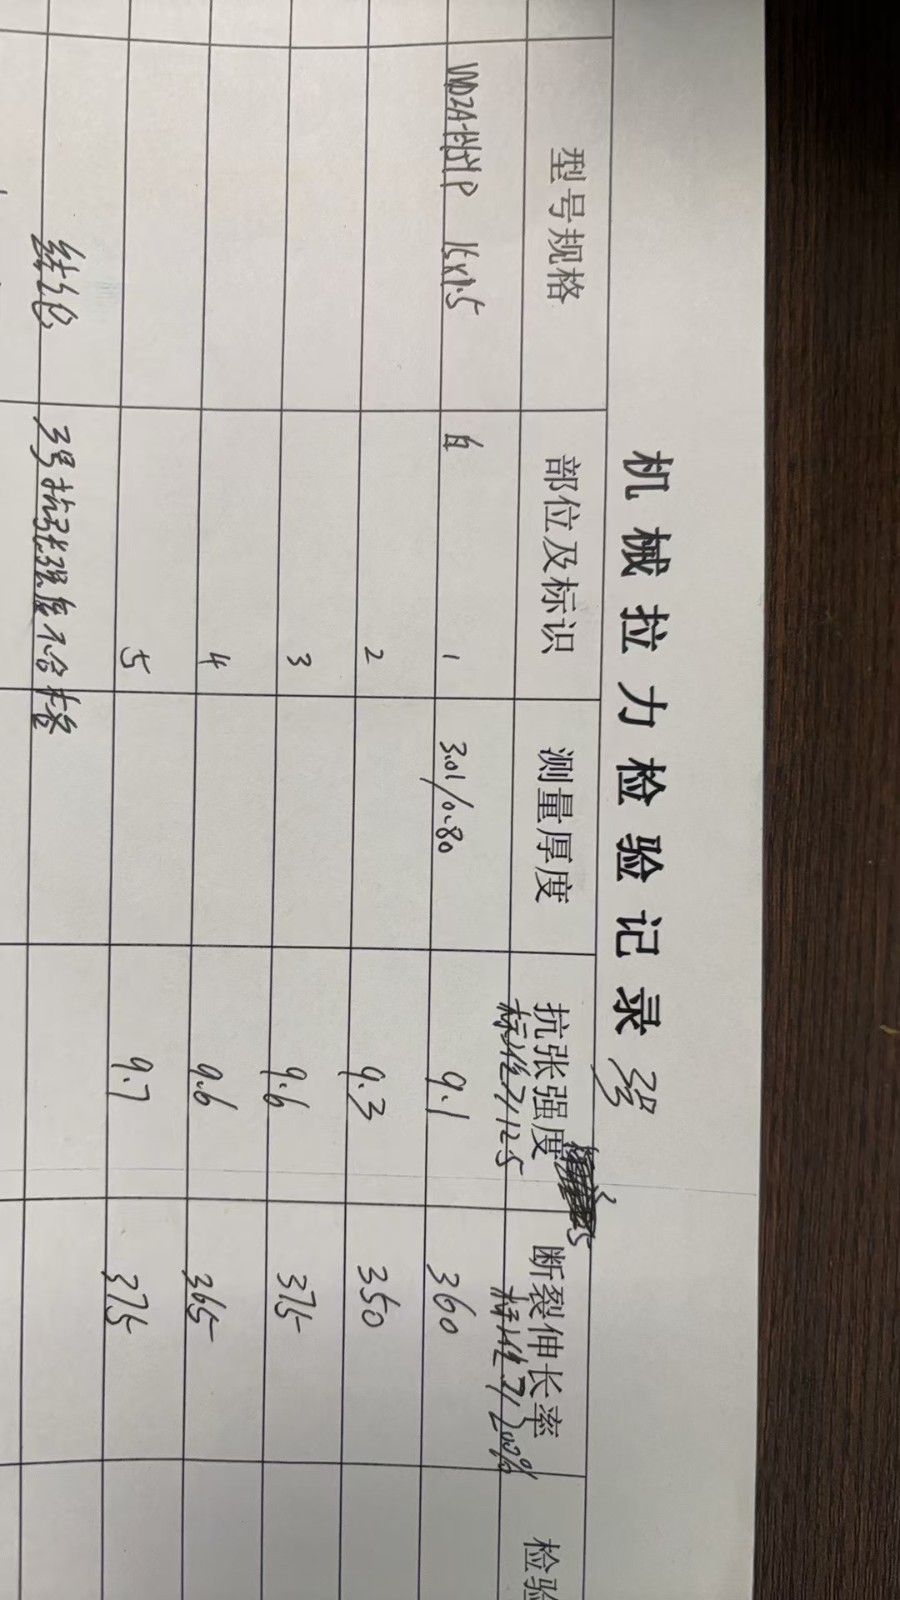 机械拉力检验记录
型号规格 部位及标识 测量厚度 抗张强度 断裂伸长率 检验
标准≥12.5 标准≥200%
15×1.5 白 1 3.01/0.80 9.1 360
2 9.3 350
3 9.6 375
4 9.6 365
5 9.7 375
结论 3号抗张强度不合格